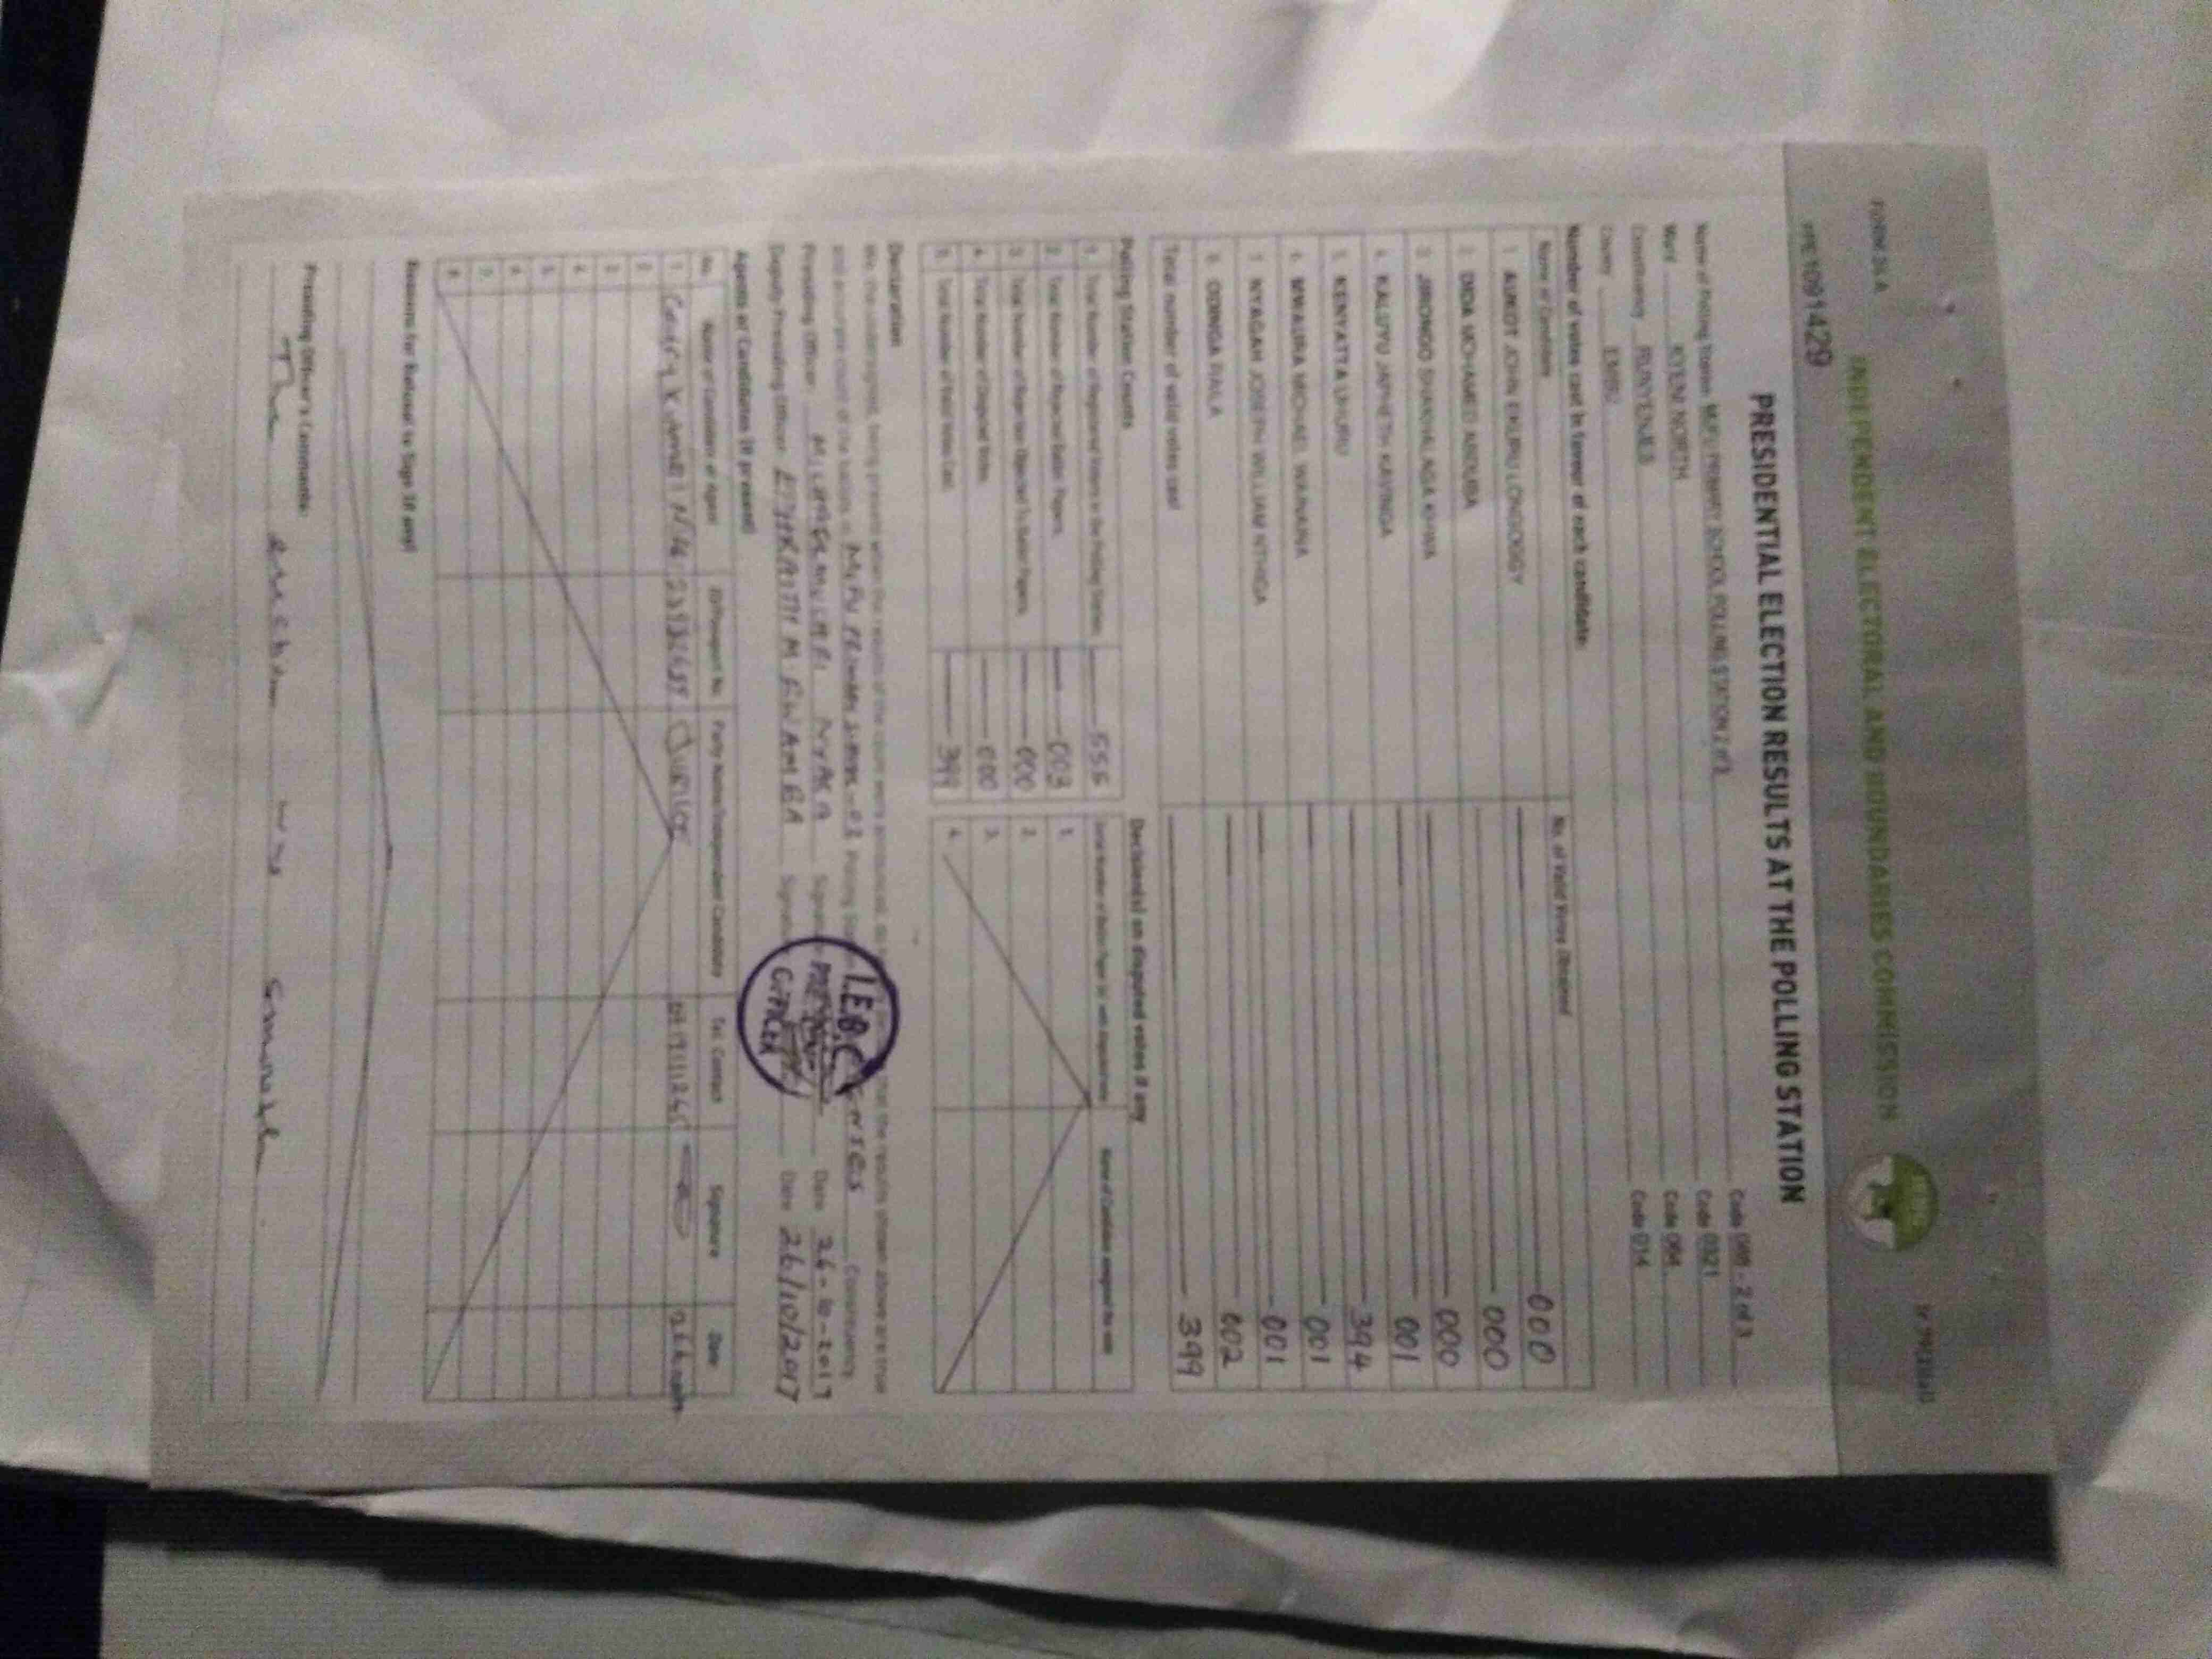 FORM 34 A
INDEPENDENT ELECTORAL AND BOUNDARIES COMMISSION
PRE1091429
PRESIDENTIAL ELECTION RESULTS AT THE POLLING STATION
Name of Polling Station PRIMARY SCHOOL POLLING STATION 2 of 3 Code 2 of 3
Ward KYENI NORTH Code 0321
Constituency RUNYENJES Code 064
County EMBU Code 014
Number of votes cast in favour of each candidate:
Name of Candidate No. of Valid Votes Obtained
1 AUKOT JOHN EKURU LONGOGGY 000
2 DIDA MOHAMED ABDUBA 000
3 JIRONGO SHAKHALAGA KHWA 000
4 KALUYU JAPHETH KAVINGA 001
5 KENYATTA UHURU 394
6 MWAURA MICHAEL WAINAINA 001
7 NYAGAH JOSEPH WILLIAM NTHIGA 001
8 ODINGA RAILA 002
Total number of valid votes cast 399
Polling Station Counts
1. Total Number of Registered Voters in the Polling Station 555
2. Total Number of Rejected Ballot Papers 003
3. Total Number of Rejection Objected To Ballot Papers 000
4. Total Number of Disputed Votes 000
5. Total Number of Valid Votes Cast 399
Decision(s) on disputed votes if any
1.
2.
3.
4.
Declaration
We, the undersigned, being present when the results of the count were announced, do the results shown above are true
and accurate count of the ballots in Polling Constituency
Presiding Officer Date 26-10-2017
Deputy Presiding Officer Date 26/10/2017
I.E.B.C
PRESIDING
OFFICER
Agents or Candidates (if present)
No. Name of Candidate or Agent ID/Passport No. Party Name/Independent Candidate Tel. Contact Signature Date
1. JUBILEE
2.
3.
4.
5.
6.
7.
8.
Reasons for Refusal to Sign (if any)
Presiding Officer's Comments:
The election was smooth